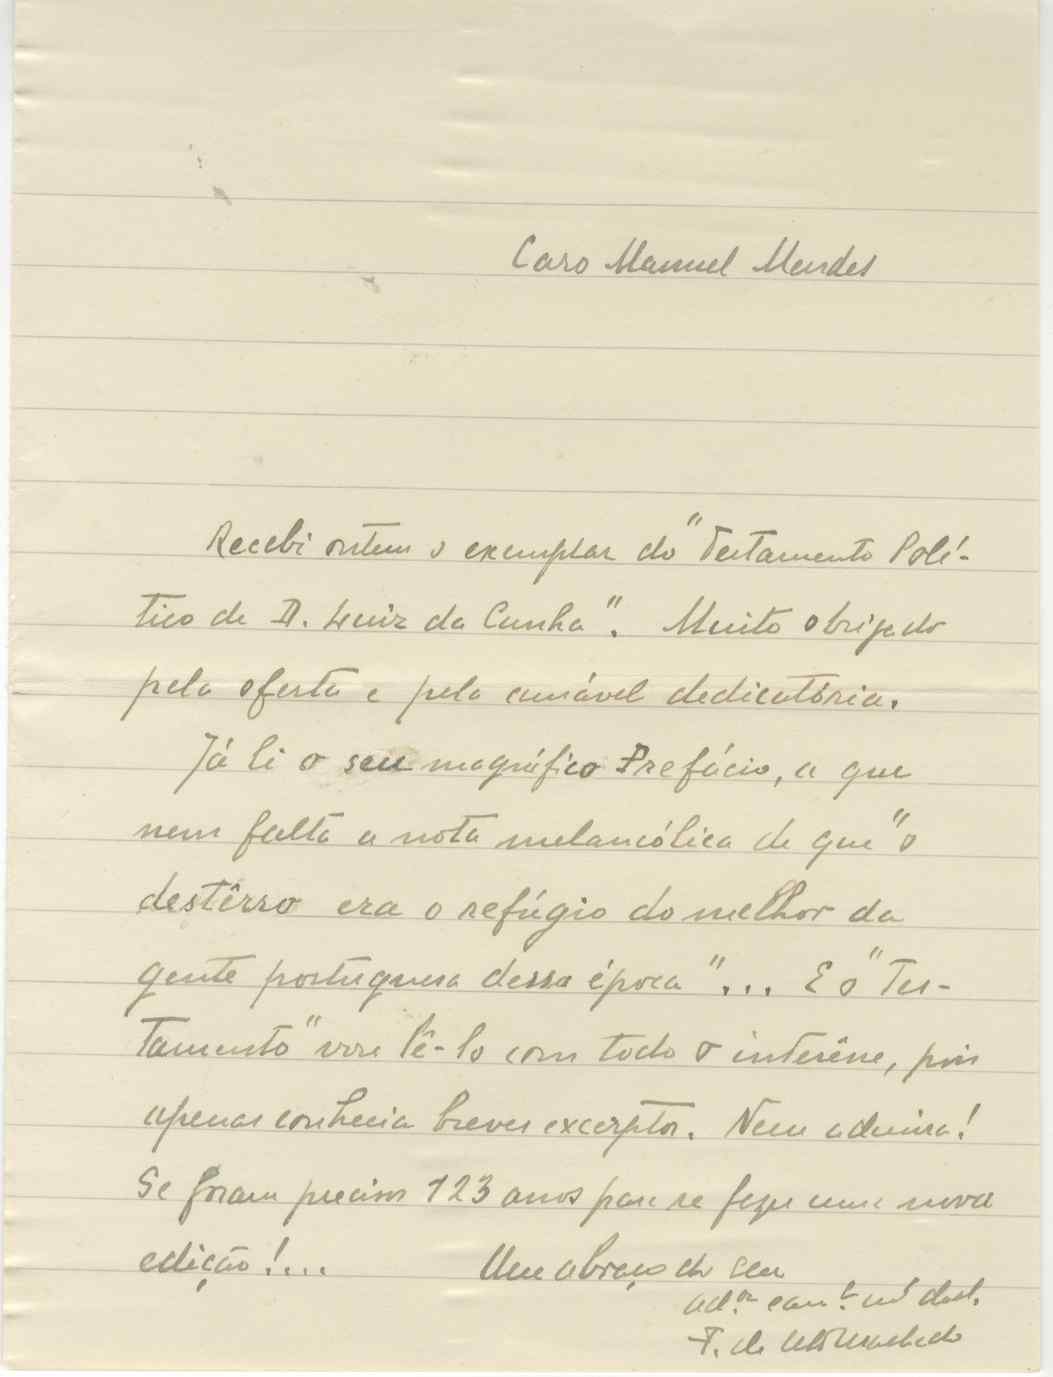 Caro Manuel Mendes
Recebi ontem o exemplar do "Testamento Polí-
tico de D. Luiz da Cunha". Muito obrigado
pela oferta e pela amável dedicatória.
Já li o seu magnífico Prefácio, a que
nem falta a nota melancólica de que "o
destêrro era o refúgio do melhor da
gente portuguesa dessa época"... E o "Tes-
tamento" vou lê-lo com todo o interêsse, pois
apenas conhecia breves excerptos. Nem admira!
Se foram precisos 123 anos para se fazer uma nova
edição!... Um abraço do seu
ad.or cam.a
F. de Machado